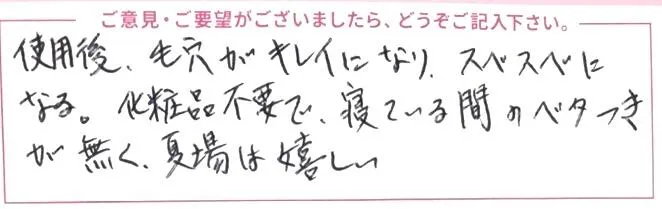 ご意見・ご要望がございましたら、どうぞご記入下さい。
使用後、毛穴がキレイになり、スベスベに
なる。化粧品不要で、寝ている間のベタつき
が無く、夏場は嬉しい